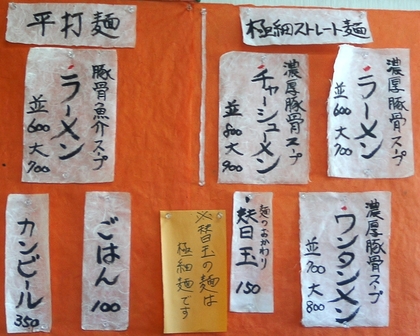 平打麺
豚骨魚介スープ
ラーメン
並600 大700
極細ストレート麺
濃厚豚骨スープ
ラーメン
並600 大700
濃厚豚骨スープ
チャーシューメン
並800 大900
濃厚豚骨スープ
ワンタンメン
並700 大800
麺のおかわり
替玉 150
※替玉の麺は
極細麺です
ごはん 100
カンビール 350